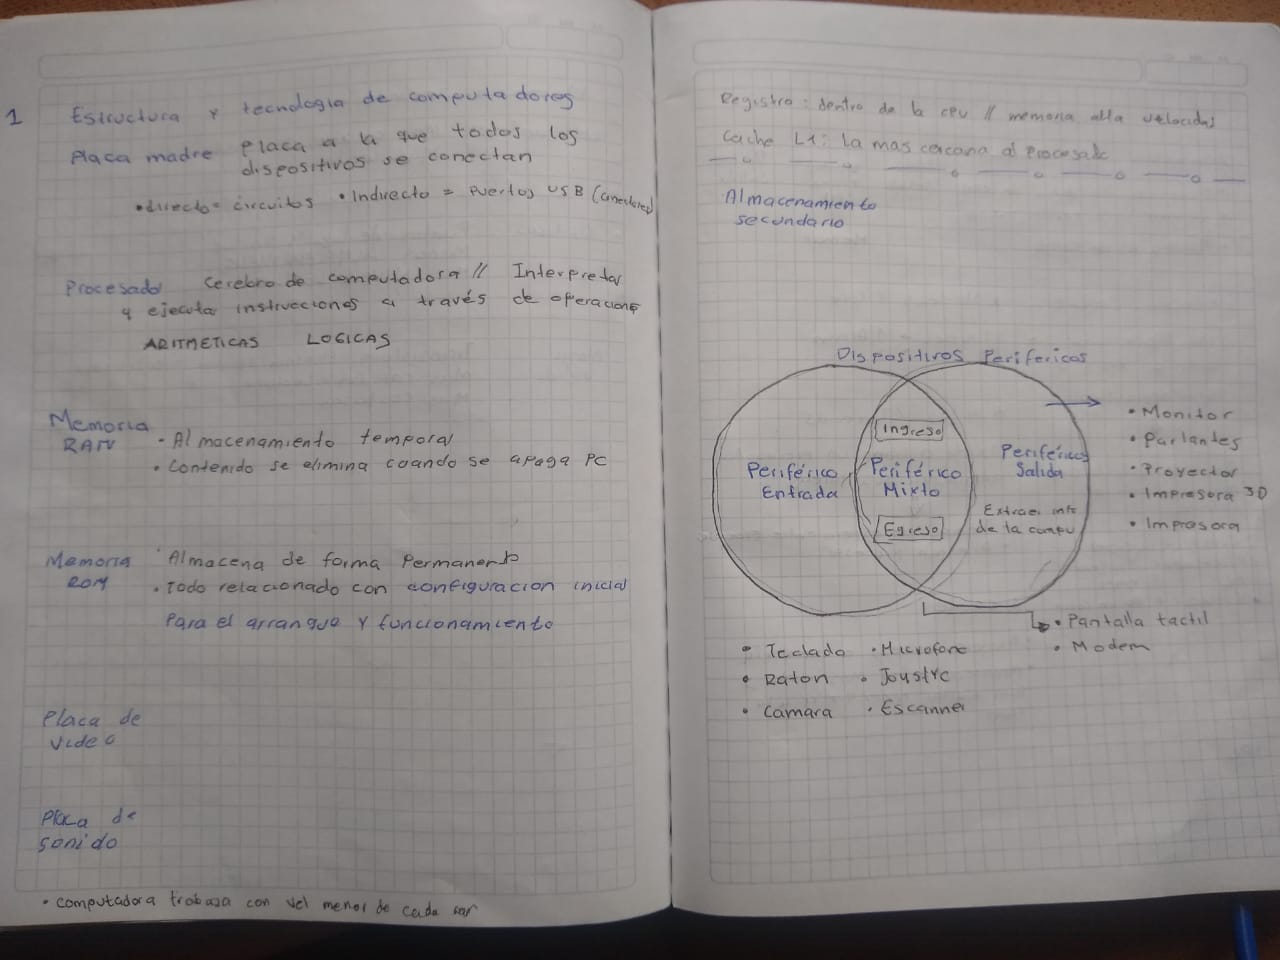 1
Estructura y tecnologia de computadores
Placa madre placa a la que todos los
dispositivos se conectan
• directo = circuitos • Indirecto = Puertos USB (conectores)
Procesador Cerebro de computadora // Interpretar
y ejecutar instrucciones a través de operaciones
ARITMETICAS LOGICAS
Memoria
RAM
• Almacenamiento temporal
• Contenido se elimina cuando se apaga PC
Memoria
ROM
• Almacena de forma Permanente
• Todo relacionado con configuracion inicial
Para el arranque y funcionamiento
Placa de
video
Placa de
sonido
• computadora trabaja con vel menor de cada
Registro: dentro de la CPU // memoria alta velocidad
Cache L1: la mas cercana al Procesado
Almacenamiento
secundario
Dispositivos Perifericos
Periférico
Entrada
Ingreso
Periférico
Mixto
Egreso
Periférico
Salida
Extraer info
de la compu
• Monitor
• Parlantes
• Proyector
• Impresora 3D
• Impresora
• Pantalla tactil
• Modem
• Teclado • Microfono
• Raton • Joustyc
• Camara • Escanner